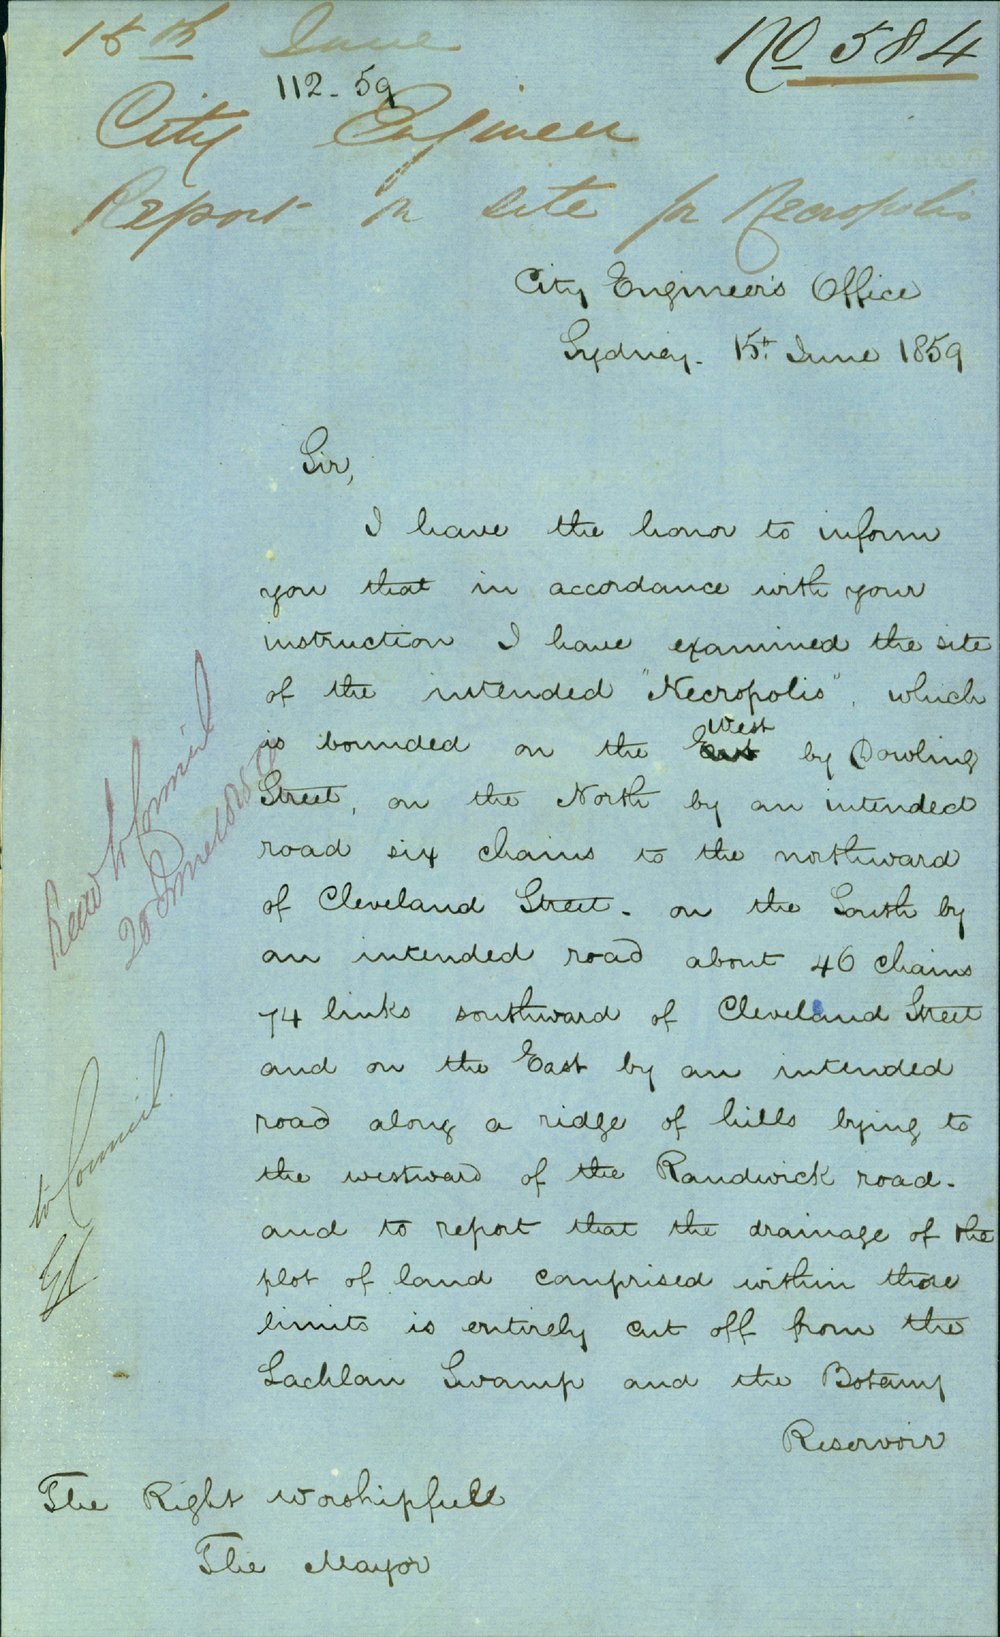 15th June
No 584
112-59
City Engineer
Report on site for Necropolis
City Engineer's Office
Sydney. 15th June 1859
Sir,
I have the honor to inform
you that in accordance with your
instruction I have examined the site
of the intended "Necropolis", which
is bounded on the East West by Dowling
Street, on the North by an intended
road six chains to the northward
of Cleveland Street. on the South by
an intended road about 46 chains
74 links southward of Cleveland Street
and on the East by an intended
road along a ridge of hills lying to
the westward of the Randwick road.
and to report that the drainage of the
plot of land comprised within those
limits is entirely cut off from the
Lachlan Swamp and the Botany
Reservoir
The Right Worshipfull
The Mayor
to Council
20 June 1859
to Council.